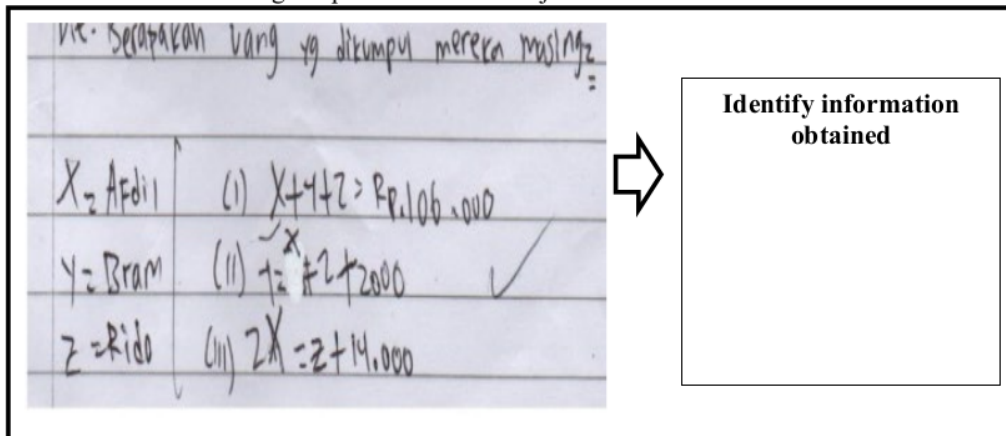 Dit. Berapakah uang yg dikumpul mereka masing2
X = Afdil (i) X+Y+Z = Rp.106.000
Y = Bram (ii) Y = X+Z+2000
Z = Rido (iii) 2X = Z+14.000
Identify information
obtained